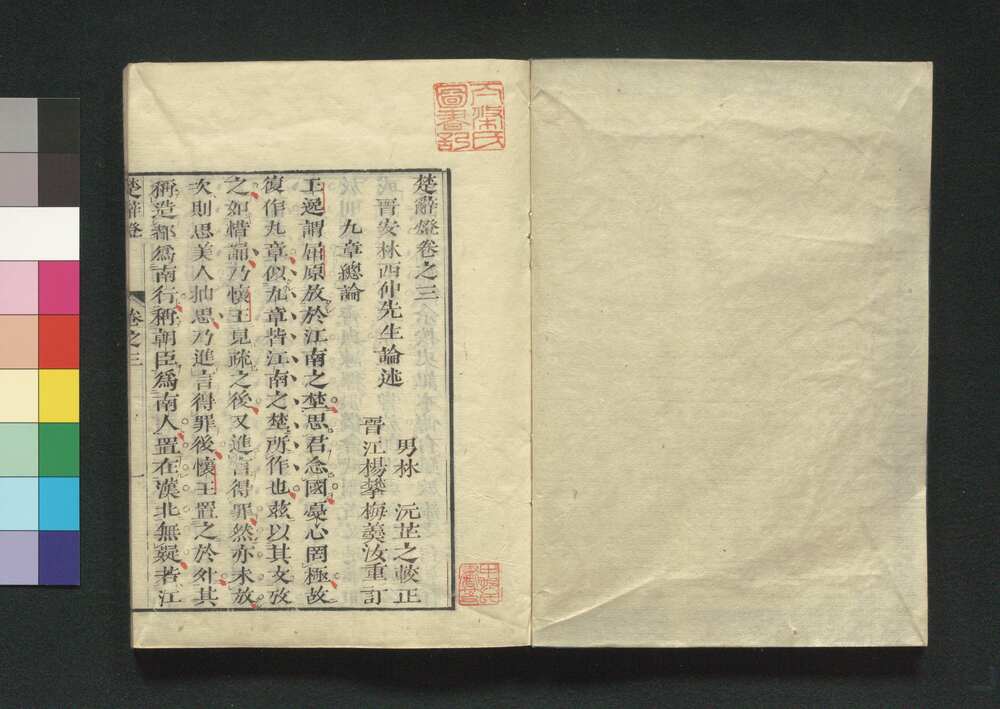 楚辭燈卷之三
晋安林西仲先生論述
男林 沅芷之較正
晉江楊攀梅羲汝重訂
九章總論
王逸謂屈原放於江南之埜思君念國憂心罔極故
復作九章似九章皆江南之埜所作也玆以其文攷
之如惜誦乃懷王見疏之後又進言得罪然亦未放
次則思美人抽思乃進言得罪後懷王置之於外其
稱造都爲南行稱朝臣爲南人置在漢北無疑若江
楚辭燈
卷之三
一
圖書記